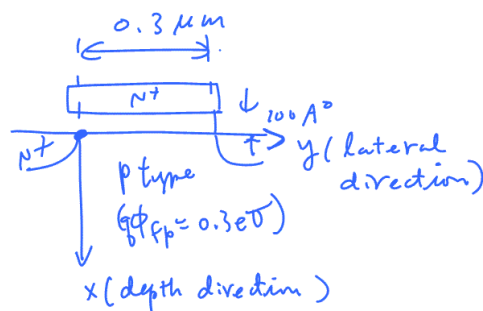 0.3 μm
N+
100 A°
N+
y (lateral direction)
p type
(qϕFp = 0.3eV)
x (depth direction)